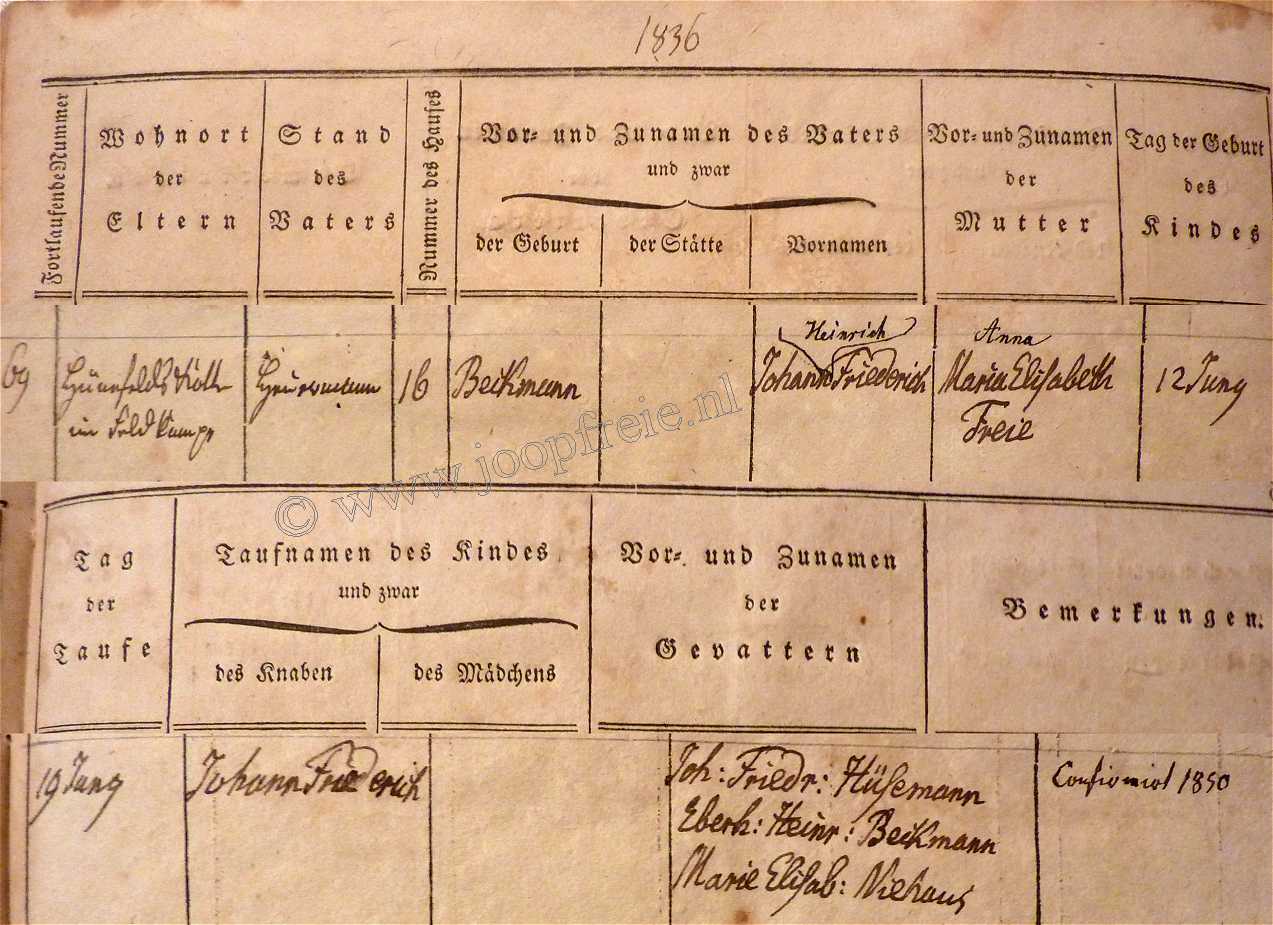 1836
Fortlaufende Nummer
Wohnort
der
Eltern
Stand
des
Vaters
Nummer des Hauses
Vor- und Zunamen des Vaters
und zwar
der Geburt
der Stätte
Vornamen
Vor- und Zunamen
der
Mutter
Tag der Geburt
des
Kindes
69
im Feldkampe
Heuermann
16
Beckmann
Heinrich
Johann Friederich
Anna
Maria Elisabeth
Freie
12 Juny
© www.joopfreie.nl
Tag
der
Taufe
Taufnamen des Kindes
und zwar
des Knaben
des Mädchens
Vor- und Zunamen
der
Gevattern
Bemerkungen.
19 Juny
Johann Friederich
Joh: Friedr: Hüsemann
Eberh: Heinr: Beckmann
Marie Elisab: Niehaus
Confirmirt 1850